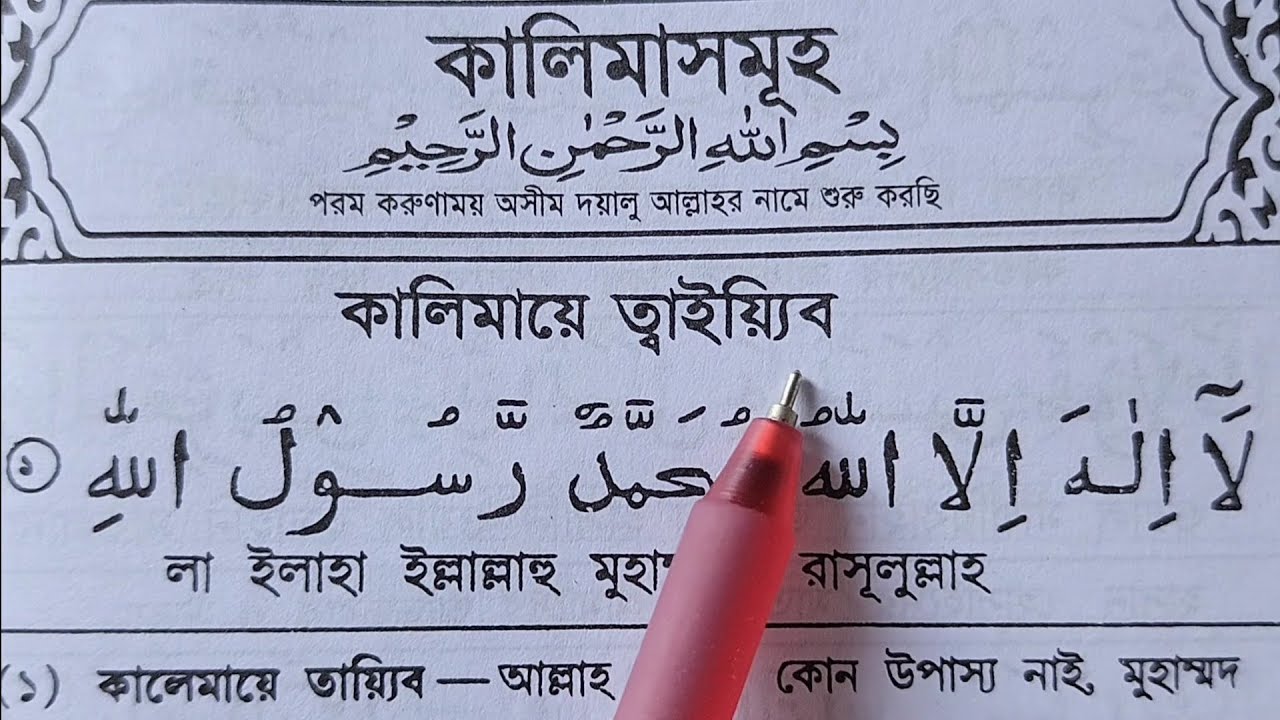 কালিমাসমূহ
بِسْمِ اللّٰهِ الرَّحْمٰنِ الرَّحِيْمِ
পরম করুণাময় অসীম দয়ালু আল্লাহর নামে শুরু করছি
কালিমায়ে ত্বাইয়্যিব
لَآ اِلٰهَ اِلَّا اللّٰهُ رَّسُوْلُ اللّٰهِ ১
লা ইলাহা ইল্লাল্লাহু রাসূলুল্লাহ
(১) কালেমায়ে তায়্যিব — আল্লাহ কোন উপাস্য নাই, মুহাম্মদ